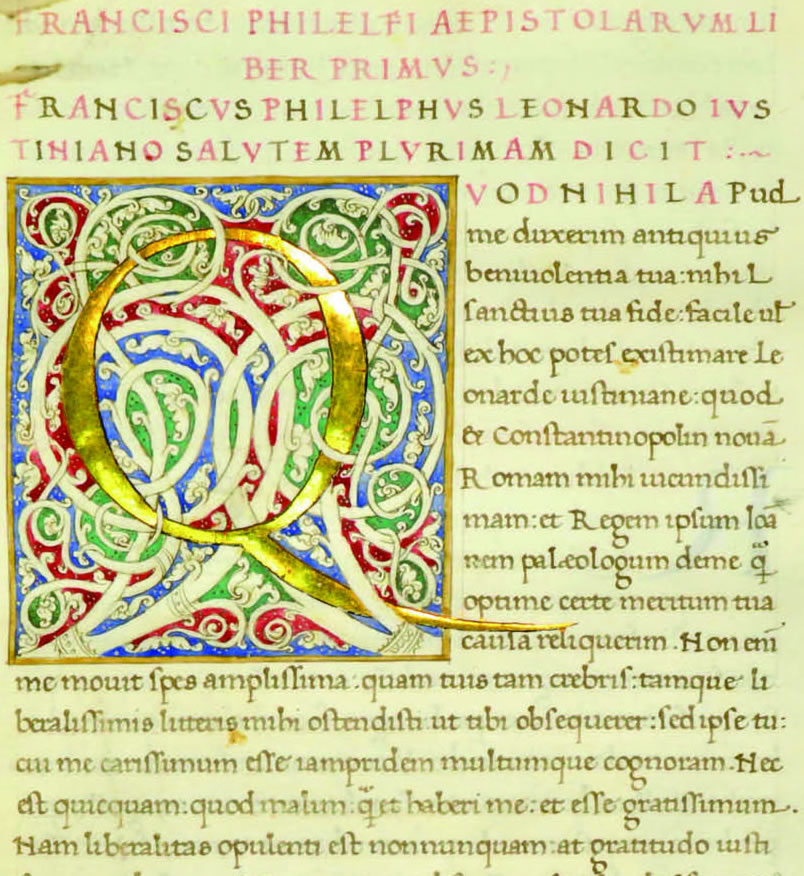 FRANCISCI PHILELFI AEPISTOLARVM LI
BER PRIMVS:,
FRANCISCVS PHILELPHVS LEONARDO IVS
TINIANO SALVTEM PLVRIMAM DICIT :~
QVOD NIHIL APud
me duxerim antiquius
beniuolentia tua:nihil
sanctius tua fide:facile ut
ex hoc potes existimare Le
onarde iustiniane:quod
& Constantinopolin nouā
Romam mihi iucundissi
mam:et Regem ipsum Ioā
nem palæologum de me q̄
optime certe meritum tua
causa reliquerim. Non eni
me mouit spes amplissima.quam tuis tam crebris:tamque li
beralissimis litteris mihi ostendisti ut tibi obsequerer:sed ipse tu:
cui me carissimum esse iampridem multumque cognoram. Nec
est quicquam:quod malim:q̄ et haberi me:et esse gratissimum.
Nam liberalitas opulenti est nonnunquam:at gratitudo iusti